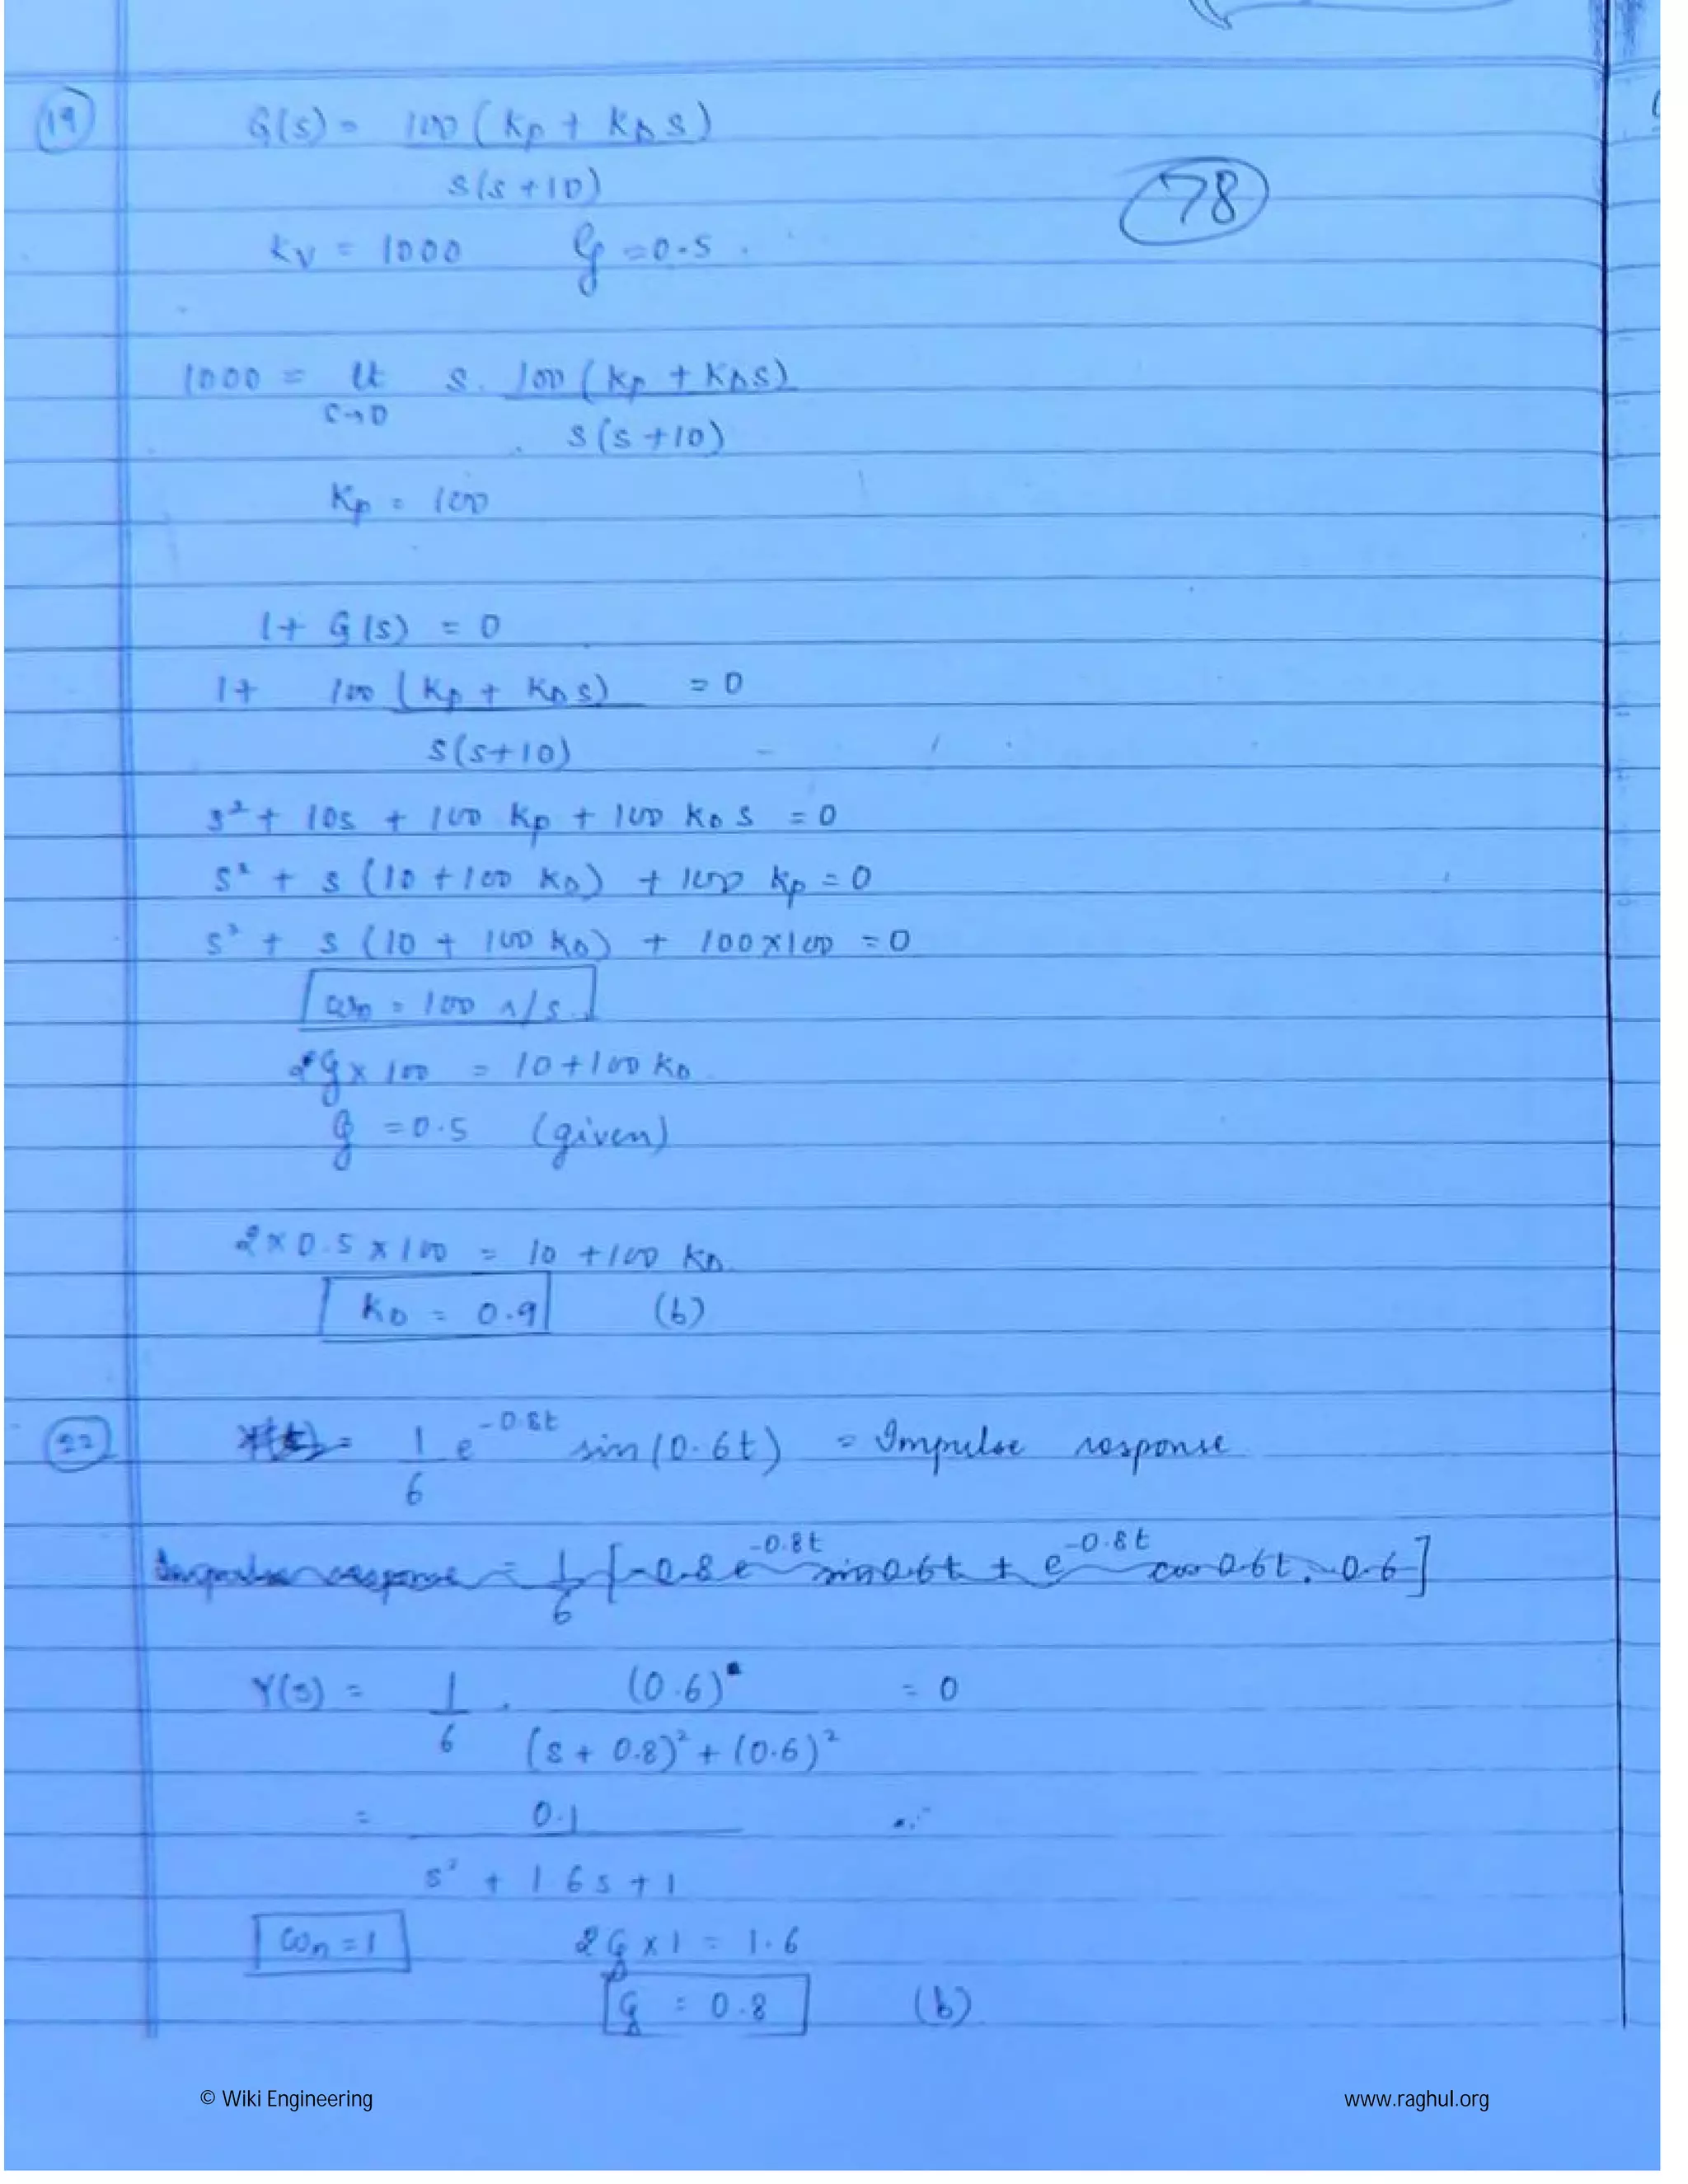 19
G(s) = 100 (Kp + KDs)
s(s+10)
78
Kv = 1000 ξ = 0.5
1000 = lt s. 100 (Kp + KDs)
s→0 s(s+10)
Kp = 100
1 + G(s) = 0
1 + 100 (Kp + KDs) = 0
s(s+10)
s² + 10s + 100 Kp + 100 KD s = 0
s² + s (10 + 100 KD) + 100 Kp = 0
s² + s (10 + 100 KD) + 100×100 = 0
ωn = 100 r/s.
2ξ × 100 = 10 + 100 KD
ξ = 0.5 (given)
2 × 0.5 × 100 = 10 + 100 KD.
KD = 0.9 (b)
22
= 1 e^-0.8t sin(0.6t) = Impulse response
6
Impulse response = 1 [-0.8 e^-0.8t sin 0.6t + e^-0.8t cos 0.6t . 0.6]
6
Y(s) = 1 . (0.6) = 0
6 (s + 0.8)² + (0.6)²
= 0.1
s² + 1.6s + 1
ωn = 1 2ξ × 1 = 1.6
ξ = 0.8 (b)
© Wiki Engineering www.raghul.org